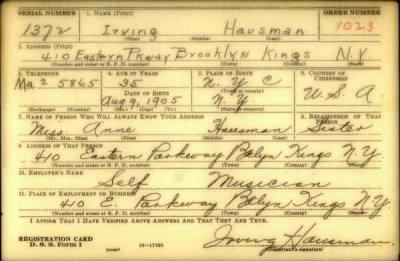 SERIAL NUMBER 1. NAME (Print) ORDER NUMBER
1372 Irving Hausman 1023
(First) (Middle) (Last)
2. ADDRESS (Print)
410 Eastern Pkway Brooklyn Kings N.Y.
(Number and street or R. F. D. number) (Town) (County) (State)
3. TELEPHONE 4. AGE IN YEARS 5. PLACE OF BIRTH 6. COUNTRY OF CITIZENSHIP
Ma 2 5865 35 N.Y.C
DATE OF BIRTH (Town or county)
Aug 9, 1905 N.Y. U.S.A.
(Exchange) (Number) (Mo.) (Day) (Yr.) (State or country)
7. NAME OF PERSON WHO WILL ALWAYS KNOW YOUR ADDRESS 8. RELATIONSHIP OF THAT PERSON
Miss. Anne Hausman Sister
(Mr., Mrs., Miss) (First) (Middle) (Last)
9. ADDRESS OF THAT PERSON
410 Eastern Parkway Bklyn Kings N.Y.
(Number and street or R. F. D. number) (Town) (County) (State)
10. EMPLOYER'S NAME
Self Musician
11. PLACE OF EMPLOYMENT OR BUSINESS
410 E. Parkway Bklyn Kings N.Y.
(Number and street or R. F. D. number) (Town) (County) (State)
I AFFIRM THAT I HAVE VERIFIED ABOVE ANSWERS AND THAT THEY ARE TRUE.
REGISTRATION CARD
D. S. S. Form 1 (over) Irving Hausman
(Registrant's signature)